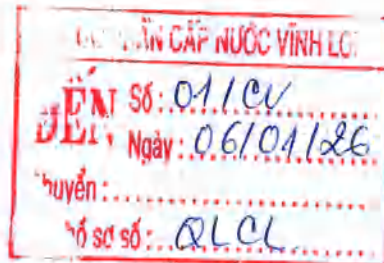 CẤP NƯỚC VĨNH
ĐẾN
Số: 01/CV
Ngày: 06/01/26
huyển:
ồ sơ số: QLCL